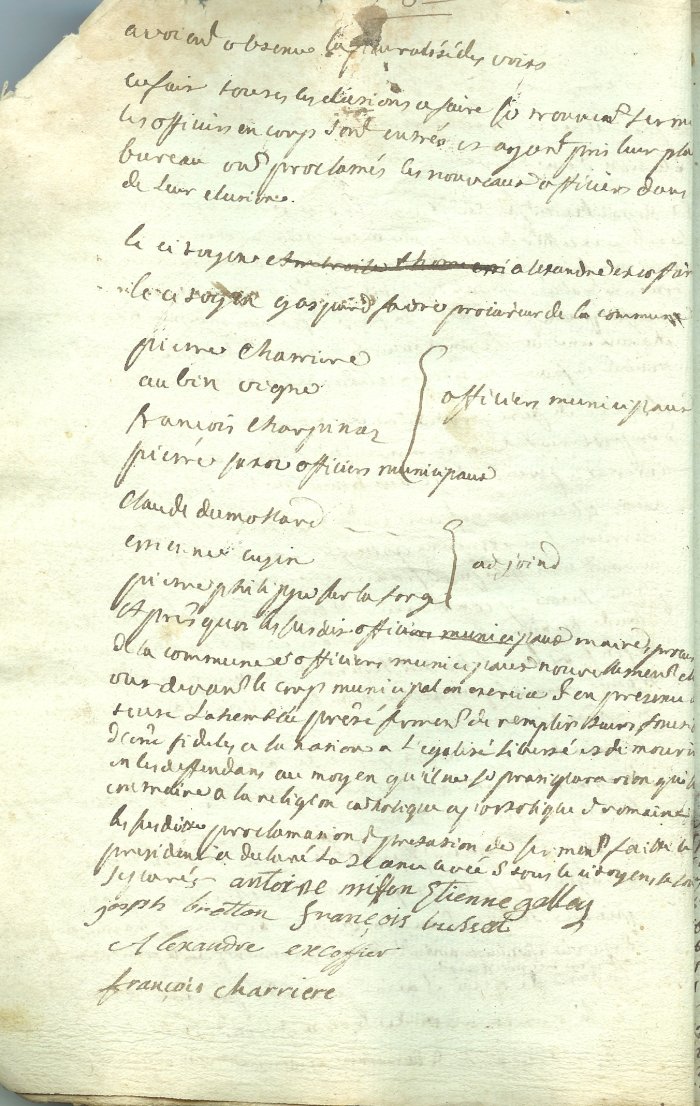 avoient obtenu la pluralité des voix
enfait toutes les elusions a faire se trouvant termi
les officiers en corps sont entrés et ayant pris leur pla
bureau ont proclamés les nouveaux officiers dans
de leur elusion.
le citoyen alexandre excoffier
le citoyen gaspard favre procureur de la commune
pierre Charriere
aubin vogne
françois Charpinaz
pierre officiers municipaux
officiers municipaux
Claude dumollard
etienne cugin
pierre philippe sur la forge
adjoind
Apres quoi les susdits officiers municipaux maire procu
de la commune et officiers municipaux nouvellement el
ont devant le corps municipal en exercice & en presence
toute L'assemblée prêté serment de remplir leurs foncti
d'etre fideles a la nation a L'egalité Liberté et de mourir
en les deffendans au moyen qu'il ne se pratiquera rien que
contraire a la religion catholique apostolique & romaine
les susdites proclamation & prestation de serment faitte le
president a declaré La Seance levée & sous le citoyens
secretaires antoine mison Etienne galley
joseph bretton françois bussat
Alexandre excoffier
françois charriere